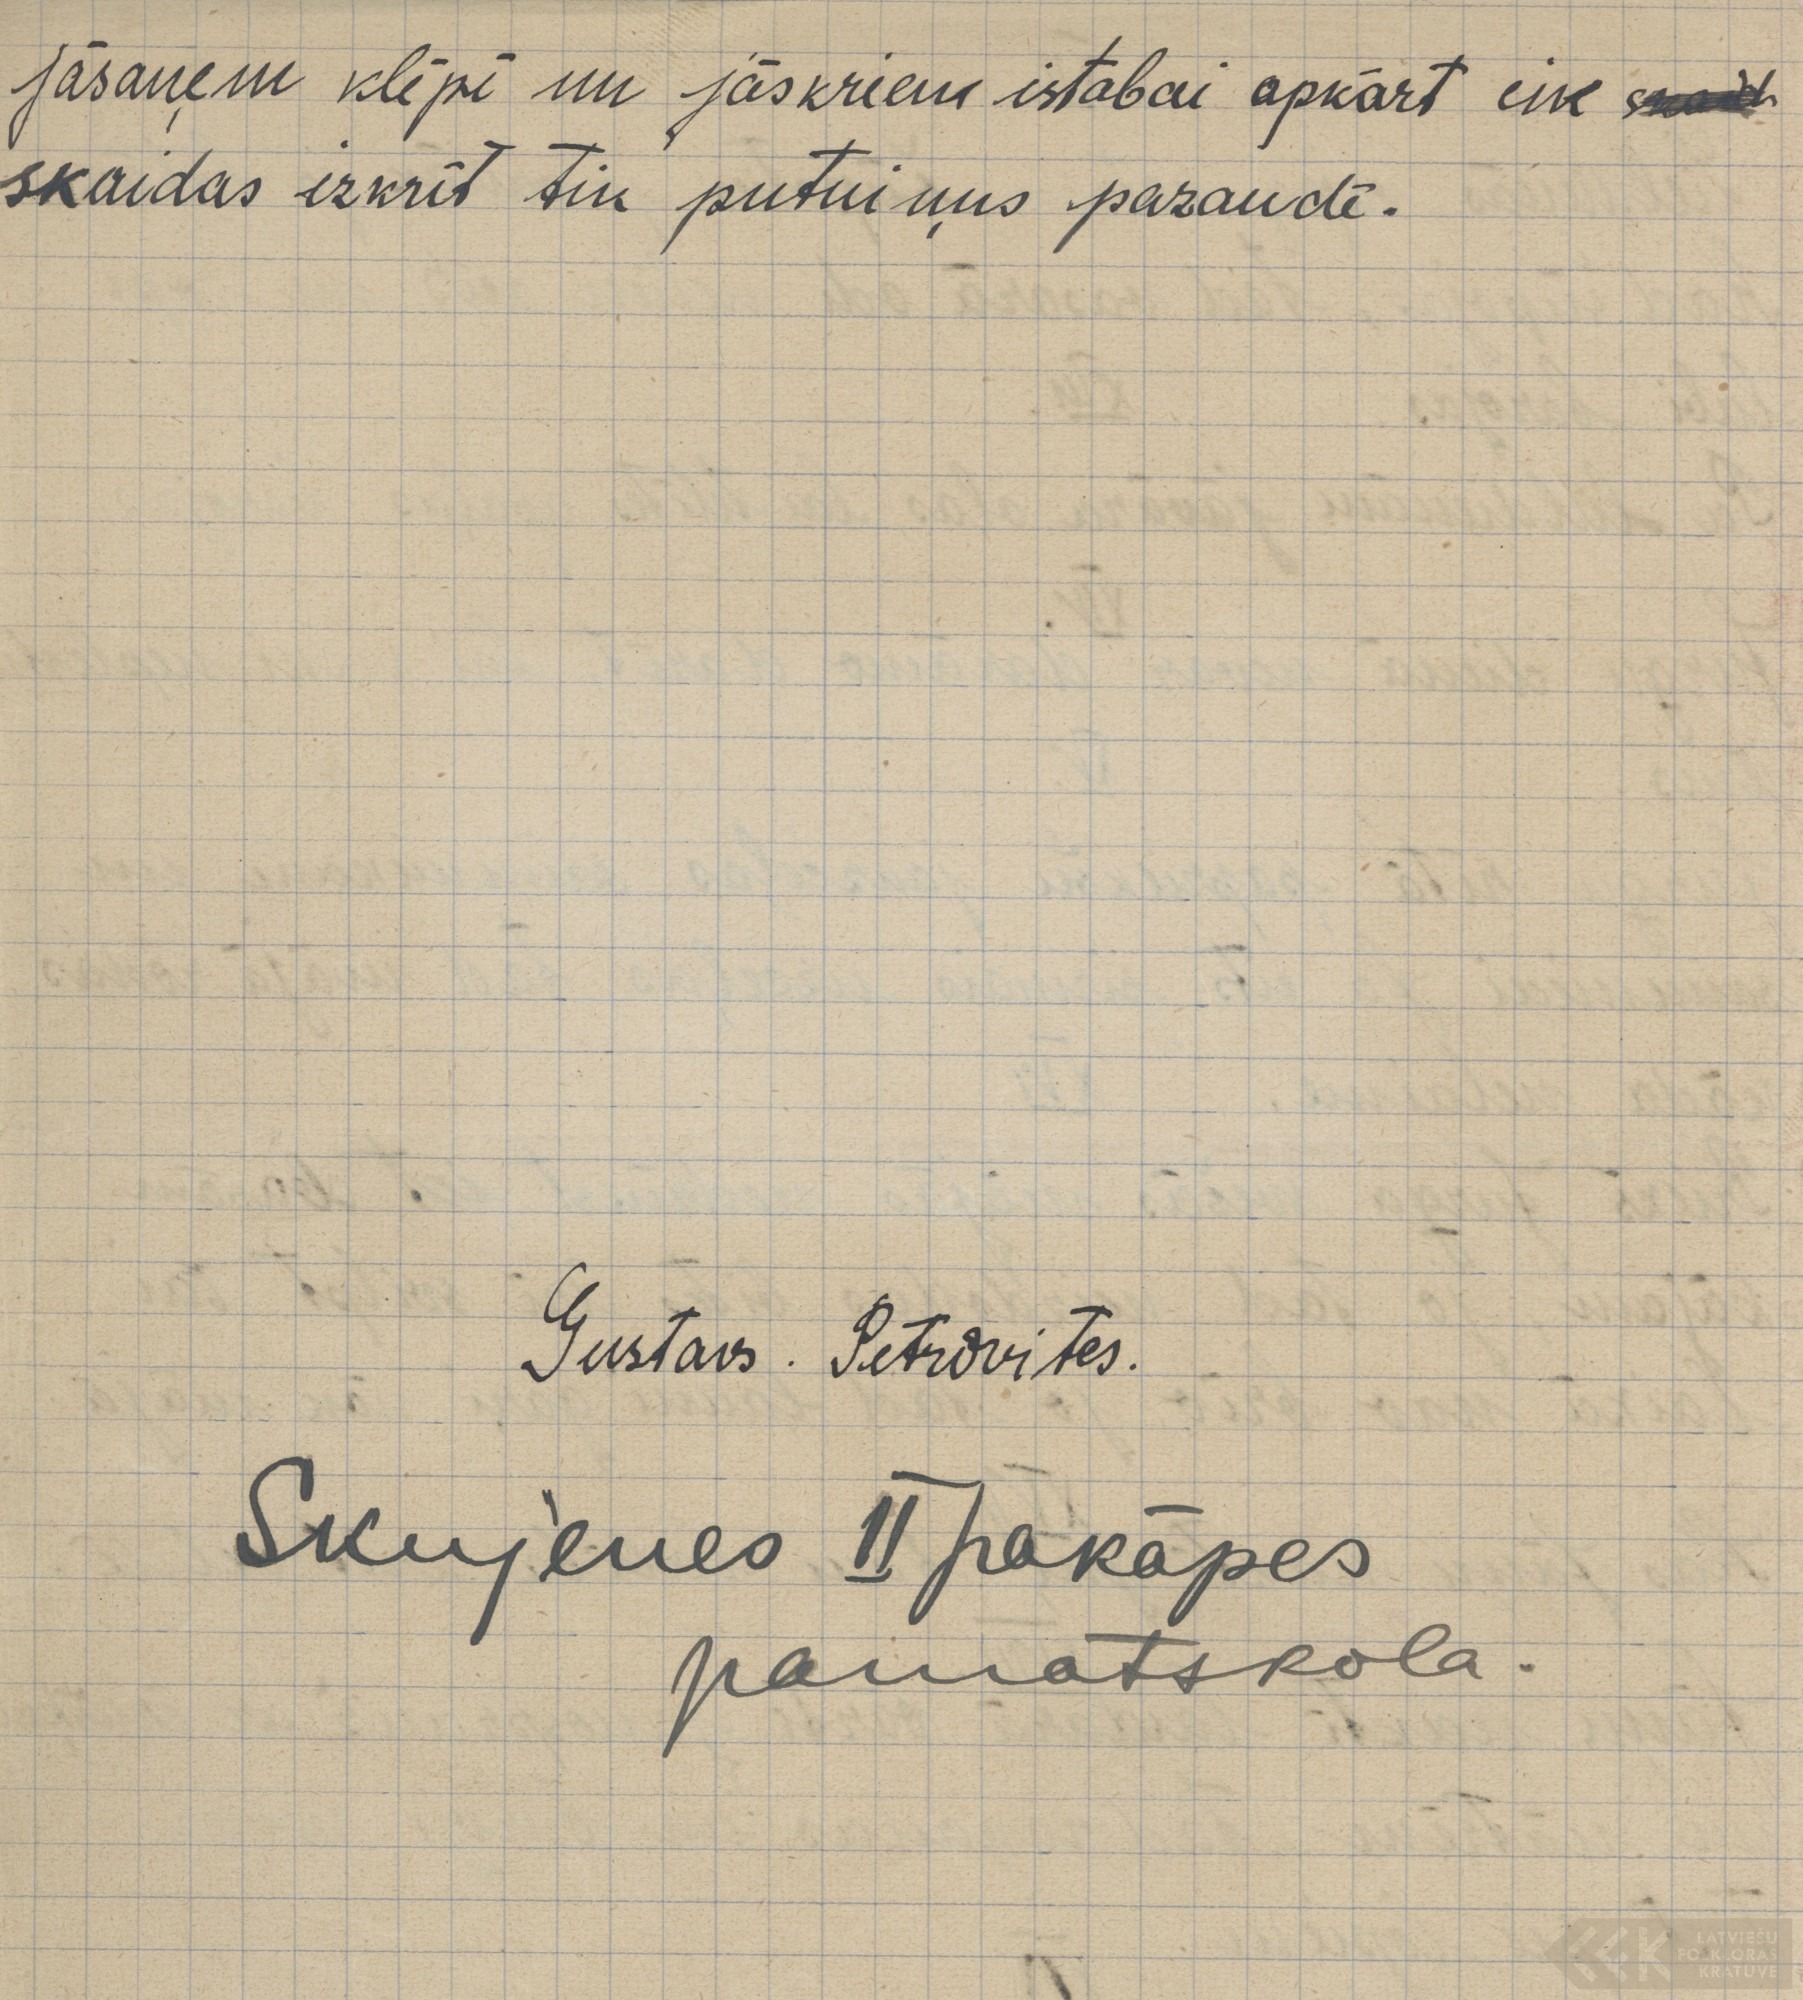 jāsaņem klēpī un jāskrien istabai apkārt cik
skaidas izkrīt tik putniņus pazaudē.
Gustavs. Petrovites.
Skujenes II pakāpes
pamatskola.
LATVIEŠU
FOLKLORAS
KRĀTUVE